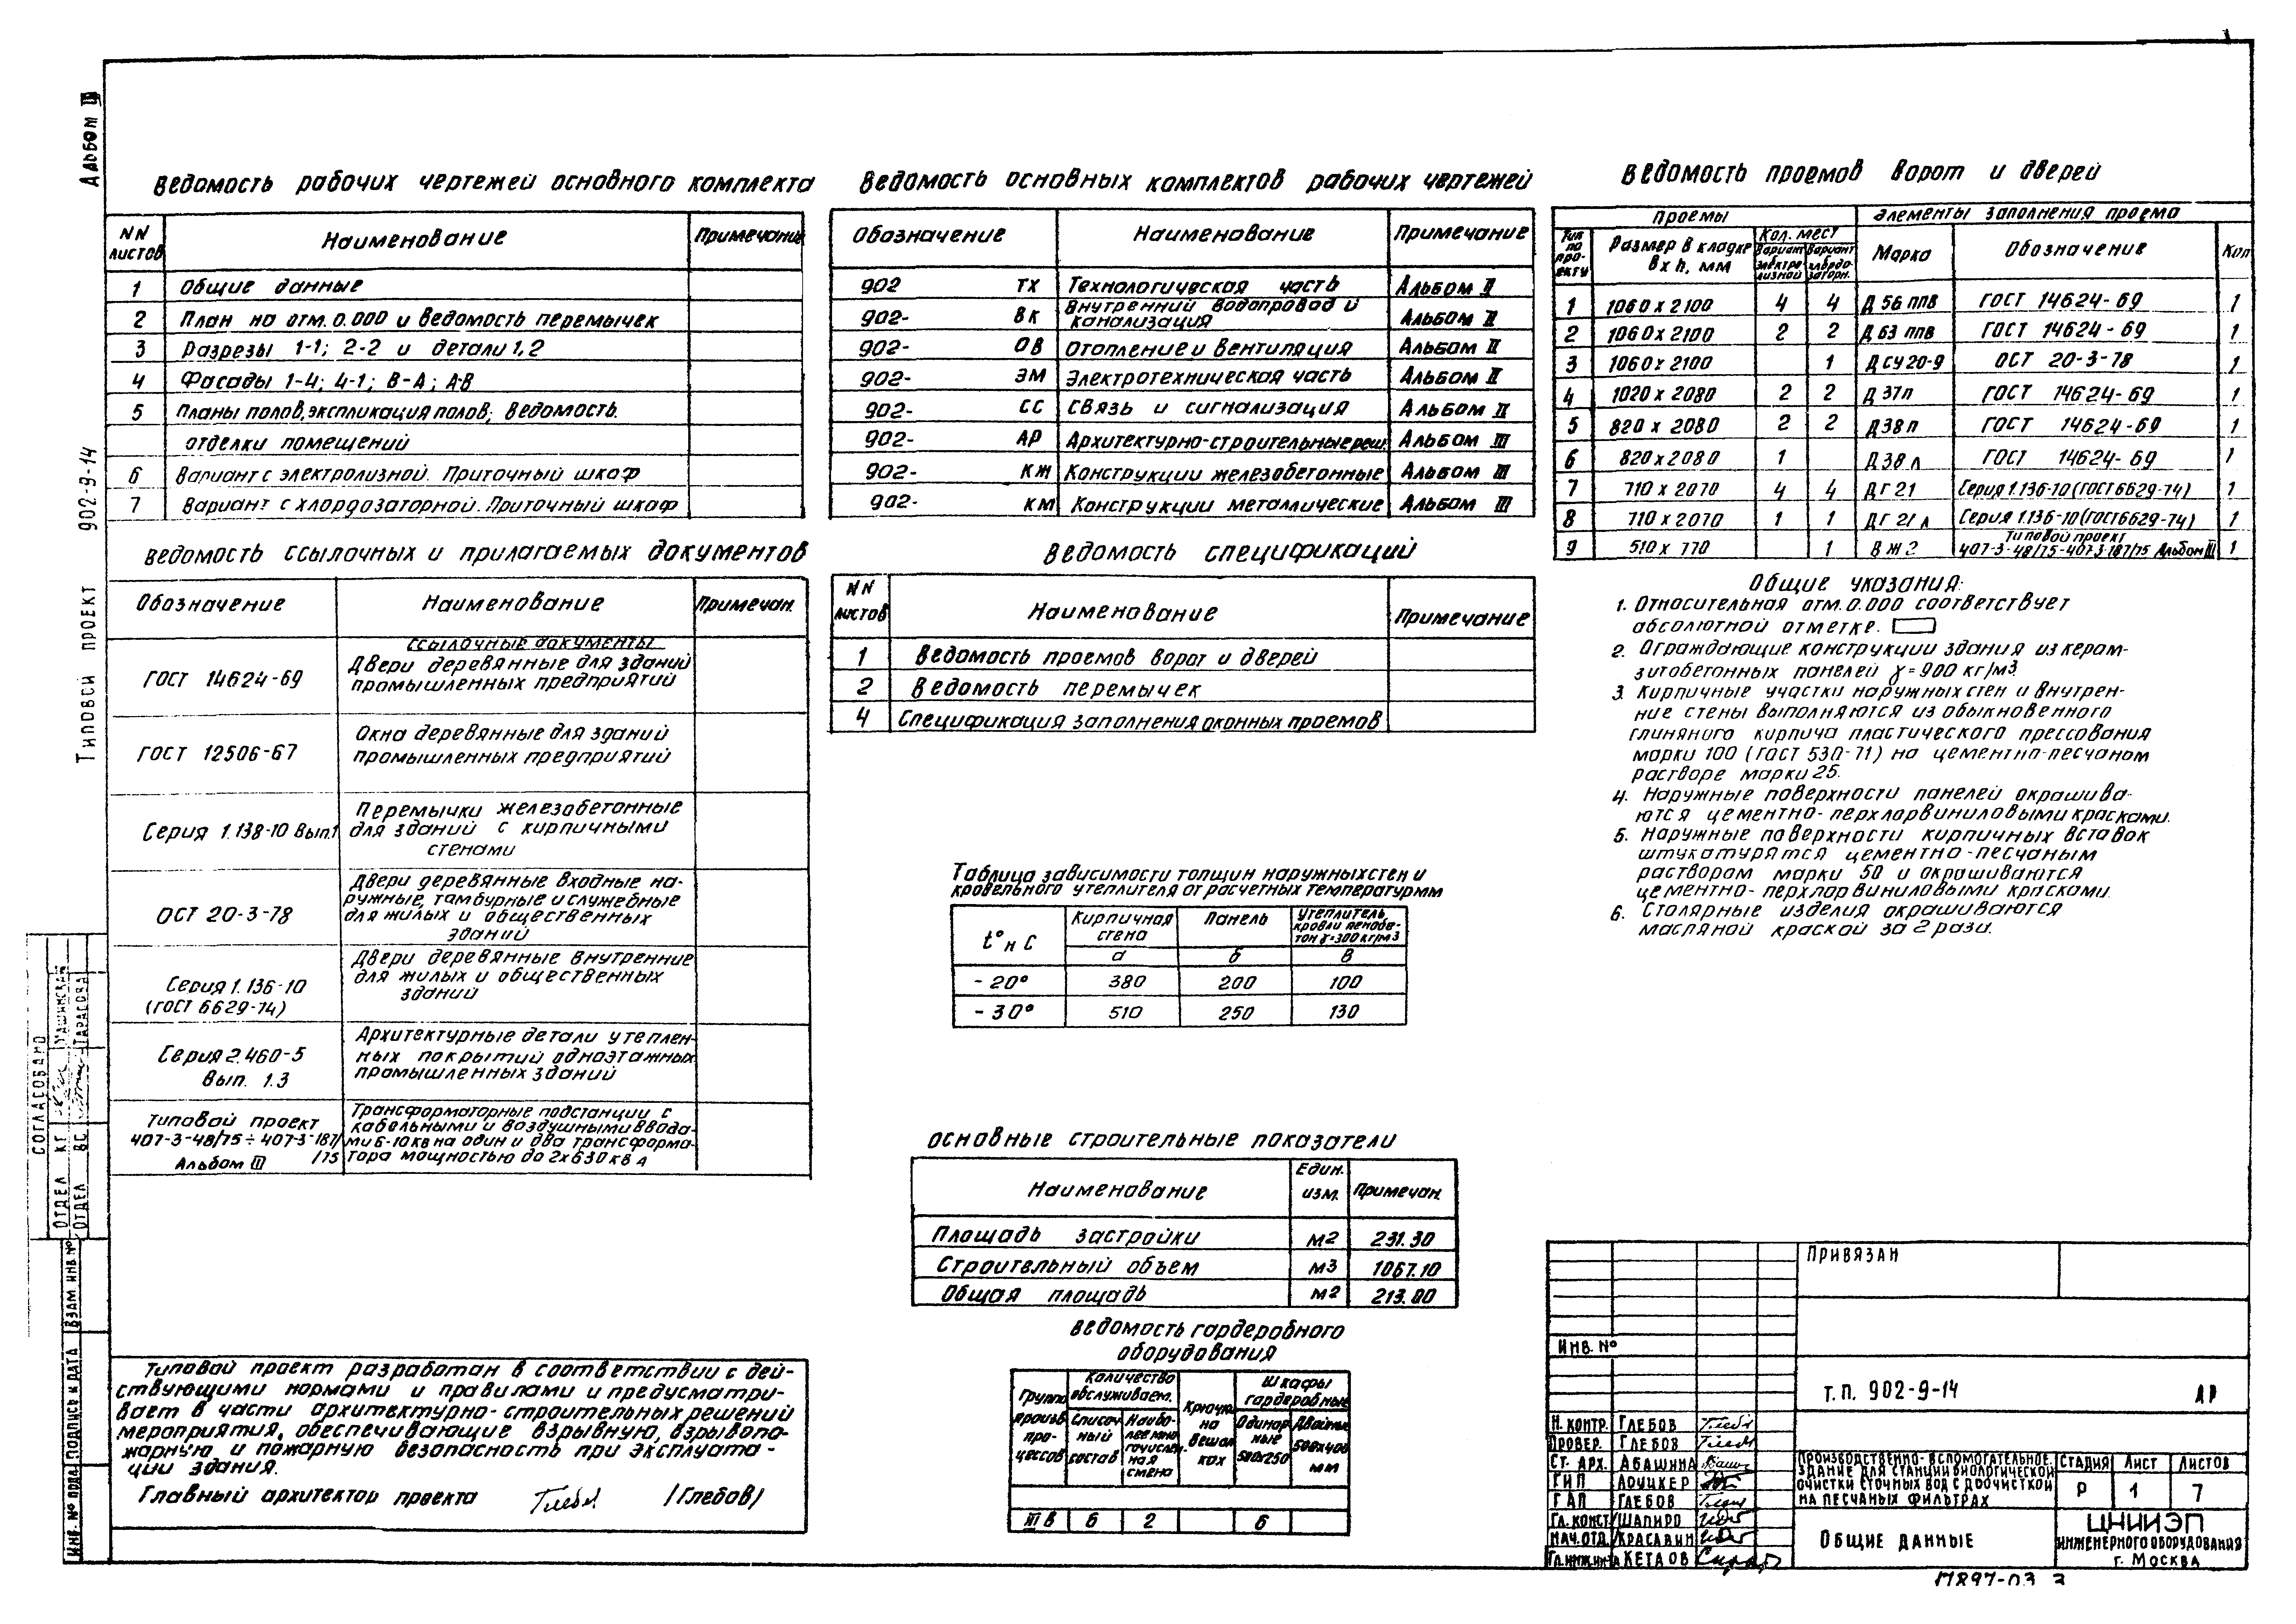 Альбом III
Типовой проект 902-9-14
Ведомость рабочих чертежей основного комплекта
NN листов Наименование Примечание
1 Общие данные
2 План на отм. 0.000 и ведомость перемычек
3 Разрезы 1-1; 2-2 и детали 1, 2
4 Фасады 1-4; 4-1; В-А; А-В
5 Планы полов, экспликация полов; ведомость
отделки помещений
6 Вариант с электролизной. Приточный шкаф
7 Вариант с хлордозаторной. Приточный шкаф
Ведомость ссылочных и прилагаемых документов
Обозначение Наименование Примечан.
Ссылочные документы
ГОСТ 14624-69 Двери деревянные для зданий
промышленных предприятий
ГОСТ 12506-67 Окна деревянные для зданий
промышленных предприятий
Серия 1.138-10 Вып.1 Перемычки железобетонные
для зданий с кирпичными
стенами
ОСТ 20-3-78 Двери деревянные входные на-
ружные, тамбурные и служебные
для жилых и общественных
зданий
Серия 1.136-10
(ГОСТ 6629-74)
Двери деревянные внутренние
для жилых и общественных
зданий
Серия 2.460-5
Вып. 1.3
Архитектурные детали утеплен-
ных покрытий одноэтажных
промышленных зданий
Типовой проект
407-3-48/75 ÷ 407-3-187/
/75
Альбом III
Трансформаторные подстанции с
кабельными и воздушными ввода-
ми 6-10 кв на один и два трансформа-
тора мощностью до 2х630 кв а
Типовой проект разработан в соответствии с дей-
ствующими нормами и правилами и предусматри-
вает в части архитектурно-строительных решений
мероприятия, обеспечивающие взрывную, взрывопо-
жарную и пожарную безопасность при эксплуата-
ции здания.
Главный архитектор проекта /Глебов/
Ведомость основных комплектов рабочих чертежей
Обозначение Наименование Примечание
902 ТХ Технологическая часть Альбом II
902- ВК Внутренний водопровод и
канализация Альбом II
902- ОВ Отопление и вентиляция Альбом II
902- ЭМ Электротехническая часть Альбом II
902- СС Связь и сигнализация Альбом II
902- АР Архитектурно-строительные реш. Альбом III
902- КЖ Конструкции железобетонные Альбом III
902- КМ Конструкции металлические Альбом III
Ведомость спецификаций
NN листов Наименование Примечание
1 Ведомость проемов ворот и дверей
2 Ведомость перемычек
4 Спецификация заполнения оконных проемов
Таблица зависимости толщин наружных стен и
кровельного утеплителя от расчетных температур мм
t° н С
Кирпичная стена Панель Утеплитель кровли пенобе-тон γ=300 кг/м3
а б в
-20° 380 200 100
-30° 510 250 130
Основные строительные показатели
Наименование Един. изм. Примечан.
Площадь застройки м2 231.30
Строительный объем м3 1067.10
Общая площадь м2 213.00
Ведомость гардеробного
оборудования
Группа произв. про-цессов
Количество обслуживаем.
Списоч ный состав
Наибо-лее мно гочислен-ная смена
Крючки на вешал ках
Шкафы гардеробные
Одинар ные 500х250
Двойные 500х400 мм
III в 6 2 6
Ведомость проемов ворот и дверей
Проемы Элементы заполнения проема
Тип по про-екту Размер в кладке в х h, мм Кол. мест Марка Обозначение Кол
Вариант электро лизной Вариант хлордо-заторн.
1 1060 х 2100 4 4 Д 56 ппв ГОСТ 14624-69 1
2 1060 х 2100 2 2 Д 63 ппв ГОСТ 14624-69 1
3 1060 х 2100 1 ДСУ 20-9 ОСТ 20-3-78 1
4 1020 х 2080 2 2 Д 37п ГОСТ 14624-69 1
5 820 х 2080 2 2 Д38п ГОСТ 14624-69 1
6 820 х 2080 1 Д38 л ГОСТ 14624-69 1
7 710 х 2070 4 4 ДГ 21 Серия 1.136-10 (ГОСТ 6629-74) 1
8 710 х 2070 1 1 ДГ 21 л Серия 1.136-10 (ГОСТ 6629-74) 1
9 510 х 770 1 ВЖ 2 Типовой проект
407-3-48/75-407-3-187/75 Альбом III 1
Общие указания:
1. Относительная отм. 0.000 соответствует
абсолютной отметке.
2. Ограждающие конструкции здания из керам-
зитобетонных панелей γ=900 кг/м3
3. Кирпичные участки наружных стен и внутрен-
ние стены выполняются из обыкновенного
глиняного кирпича пластического прессования
марки 100 (ГОСТ 530-71) на цементно-песчаном
растворе марки 25.
4. Наружные поверхности панелей окрашива-
ются цементно-перхлорвиниловыми красками.
5. Наружные поверхности кирпичных вставок
штукатурятся цементно-песчаным
раствором марки 50 и окрашиваются
цементно-перхлорвиниловыми красками.
6. Столярные изделия окрашиваются
масляной краской за 2 раза.
Привязан
Инв. №
Т.П. 902-9-14 АР
Н. контр. Глебов
Провер. Глебов
Ст. арх. Абашина
ГИП
ГАП Глебов
Гл. конст. Шапиро
Нач. отд. Красавин
Гл. инж. ин-а Кетаов
Производственно-вспомогательное
здание для станции биологической
очистки сточных вод с доочисткой
на песчаных фильтрах
Стадия Лист Листов
Р 1 7
Общие данные
ЦНИИЭП
инженерного оборудования
г. Москва
17897-03 3
Согласовано
Отдел КГ
Отдел ВС Тарасова
Взам. инв. №
Подпись и дата
Инв. № подл.